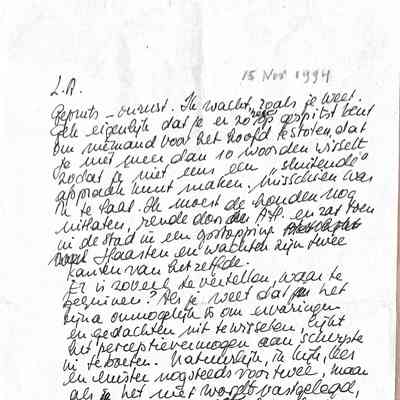 15 Nov 1994
L.A.
onrust. Ik wacht, zoals je weet.
Gek eigenlijk dat je er zo op gespitst bent
om niemand voor het hoofd te stoten, dat
je niet meer dan 10 woorden wisselt
zodat je niet eens een „sluitende"
afspraak kunt maken. Misschien was
ik te laat. Ik moest de honden nog
uitlaten, rende door de A.P. en zat toen
in de stad in een
Haasten en wachten zijn twee
kanten van hetzelfde.
Er is zoveel te vertellen, waar te
beginnen? Als je weet dat het
bijna onmogelijk is om ervaringen
en gedachten uit te wisselen, lijkt
het perceptievermogen aan scherpte
in te boeten. Natuurlijk, ik kijk, lees
en luister nog steeds voor twee, maar
als je het niet wordt vastgelegd,